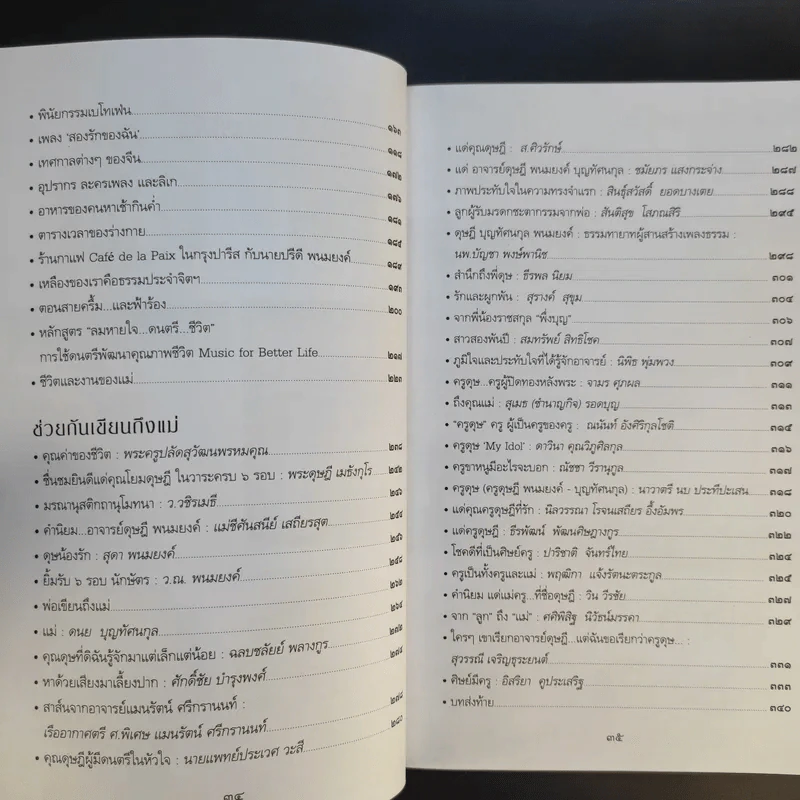 • พินัยกรรมเบโทเฟ่น ๑๖๓
• เพลง 'สองรักของฉัน' ๑๑๘
• เทศกาลต่างๆ ของจีน ๑๗๒
• อุปรากร ละครเพลง และลิเก ๑๗๖
• อาหารของคนหาเช้ากินค่ำ ๑๘๑
• ตารางเวลาของร่างกาย ๑๘๔
• ร้านกาแฟ Café de la Paix ในกรุงปารีส กับนายปรีดี พนมยงค์ ๑๘๙
• เหลืองของเราคือธรรมประจำจิตฯ ๑๙๓
• ตอนสายครึ้ม...และฟ้าร้อง ๒๐๐
• หลักสูตร "ลมหายใจ...ดนตรี...ชีวิต"
การใช้ดนตรีพัฒนาคุณภาพชีวิต Music for Better Life ๒๑๗
• ชีวิตและงานของแม่ ๒๒๓
ช่วยกันเขียนถึงแม่
• คุณค่าของชีวิต : พระครูปลัดสุวัฒนพรหมคุณ ๒๓๘
• ชื่นชมยินดีแด่คุณโยมดุษฎี ในวาระครบ ๖ รอบ : พระดุษฎี เมธังกุโร ๒๔๒
• มรณานุสติกถานุโมทนา : ว.วชิรเมธี ๒๔๖
• คำนิยม...อาจารย์ดุษฎี พนมยงค์ : แม่ชีศันสนีย์ เสถียรสุต ๒๕๔
• ดุษน้องรัก : สุดา พนมยงค์ ๒๕๖
• ยิ้มรับ ๖ รอบ นักษัตร : ว.ณ. พนมยงค์ ๒๕๘
• พ่อเขียนถึงแม่ ๒๖๒
• แม่ : ดนย บุญทัศนกุล ๒๖๔
• คุณดุษที่ดิฉันรู้จักมาแต่เล็กแต่น้อย : ฉลบชลัยย์ พลางกูร ๒๗๒
• หาด้วยเสียงมาเลี้ยงปาก : ศักดิ์ชัย บำรุงพงศ์ ๒๗๔
• สาส์นจากอาจารย์แมนรัตน์ ศรีกรานนท์ :
เรืออากาศตรี ศ.พิเศษ แมนรัตน์ ศรีกรานนท์ ๒๗๘
• คุณดุษฎีผู้มีดนตรีในหัวใจ : นายแพทย์ประเวศ วะสี ๒๘๐
๓๔
• แด่คุณดุษฎี : ส.ศิวรักษ์ ๒๘๒
• แด่ อาจารย์ดุษฎี พนมยงค์ บุญทัศนกุล : ชมัยภร แสงกระจ่าง ๒๘๗
• ภาพประทับใจในความทรงจำแรก : สินธุ์สวัสดิ์ ยอดบางเตย ๒๘๘
• ลูกผู้รับมรดกชะตากรรมจากพ่อ : สันติสุข โสภณสิริ ๒๙๕
• ดุษฎี บุญทัศนกุล พนมยงค์ : ธรรมทายาทผู้สานสร้างเพลงธรรม :
นพ.บัญชา พงษ์พานิช ๒๙๘
• สำนึกถึงพี่ดุษ : ธีรพล นิยม ๓๐๑
• รักและผูกพัน : สุรางค์ สุขุม ๓๐๔
• จากพี่น้องราชสกุล "พึ่งบุญ" ๓๐๖
• สาวสองพันปี : สมทรัพย์ สิทธิโชค ๓๐๗
• ภูมิใจและประทับใจที่ได้รู้จักอาจารย์ : นิพิธ พุ่มพวง ๓๐๙
• ครูดุษ...ครูผู้ปิดทองหลังพระ : จามร ศุภผล ๓๑๑
• ถึงคุณแม่ : สุเมธ (ชำนาญกิจ) รอดบุญ ๓๑๓
• "ครูดุษ" ครู ผู้เป็นครูของครู : ณนันท์ อังศิริกุลโชติ ๓๑๔
• ครูดุษ 'My Idol' : ดาวินา คุณวิภูศิลกุล ๓๑๖
• ครูขาหนูมีอะไรจะบอก : ณัชชา วีรานุกูล ๓๑๗
• ครูดุษ (ครูดุษฎี พนมยงค์ - บุญทัศนกุล) : นาวาตรี นบ ประทีปะเสน ๓๑๘
• แด่คุณครูดุษฎีที่รัก : นิลวรรณา โรจนเสถียร อึ้งอัมพร ๓๒๐
• แด่ครูดุษฎี : ธีรพัฒน์ พัฒนศิษฎางกูร ๓๒๒
• โชคดีที่เป็นศิษย์ครู : ปาริชาติ จันทร์ไทย ๓๒๔
• ครูเป็นทั้งครูและแม่ : พฤฒิกา แจ้งรัตนะตระกูล ๓๒๕
• คำนิยม แด่แม่ครู...ที่ชื่อดุษฎี : วิน วีรชัย ๓๒๗
• จาก "ลูก" ถึง "แม่" : ศศิพิสิฐ นิวัธน์มรรคา ๓๒๙
• ใครๆ เขาเรียกอาจารย์ดุษฎี...แต่ฉันขอเรียกว่าครูดุษ... :
สุวรรณี เจริญธุระยนต์ ๓๓๑
• ศิษย์มีครู : อิสริยา คูประเสริฐ ๓๓๓
• บทส่งท้าย ๓๔๐
๓๕